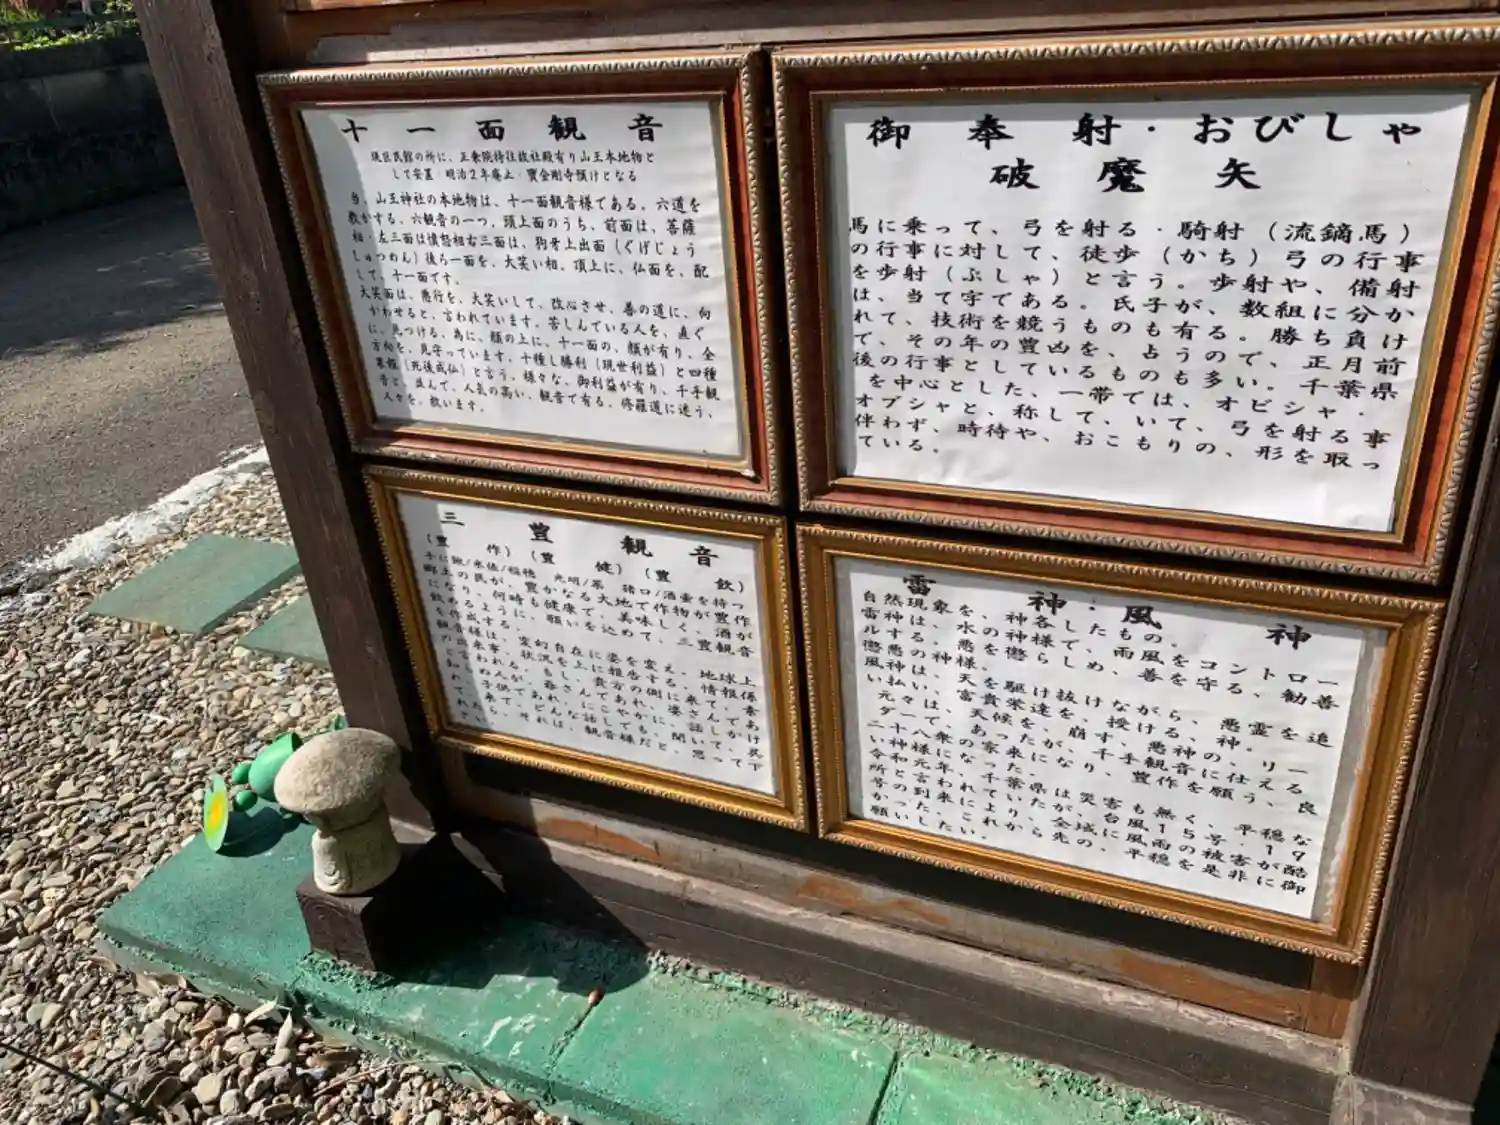 十一面観音
現区民館の所に、正乗院待往故社殿有り山王本地物と
して安置・明治2年廃止・寶金剛寺預けとなる
当、山王神社の本地物は、十一面観音様である。六道を
教かする、六観音の一つ、頭上面のうち、前面は、菩薩
相・左三面は憤怒相右三面は、狗牙上出面(くげじょう
しゅつめん)後ら一面を、大笑い相。頂上に、仏面を、配
して、十一面です。
大笑面は、悪行を、大笑いして、改心させ、善の道に、向
かわせると、言われています。苦しんでいる人を、直ぐ
に、見つける、為に、顔の上に、十一面の、顔が有り、全
方向を、見守っています。十種し勝利(現世利益)と四種
果報(死後成仏)と言う、様々な、御利益が有り、千手観
音と、並んで、人気の高い、観音で有る。修羅道に迷う、
人々を、救います。
御奉射・おびしゃ
破魔矢
馬に乗って、弓を射る・騎射(流鏑馬)
の行事に対して、徒歩(かち)弓の行事
を歩射(ぶしゃ)と言う。歩射や、備射
は、当て字である。氏子が、数組に分か
れて、技術を競うものも有る。勝ち負け
で、その年の豊凶を、占うので、正月前
後の行事としているものも多い。千葉県
を中心とした、一帯では、オビシャ・
オブシャと、称して、いて、弓を射る事
伴わず、時待や、おこもりの、形を取っ
ている。
三豊観音
(豊作)(豊健)(豊飲)
手に鍬/米俵/稲穂 光明/薬 猪口/酒壷を持つ
郷土の民が、豊かなる大地で作物が豊作
になり、何時も健康で、美味しく、酒が
飲めるように、願いを込めて、三豊観音
を作成する。
観音様は、変幻自在に姿を変え、地球上
の出来事、状況を上に報告する、情報係
と言われる。もし、貴方の側に来て、
雷神・風神
自然現象を、神各したもの。
雷神は、水の神様で、雨風をコントロー
ルする。悪を懲らしめ、善を守る、勧善
懲悪の神様。
風神は、天を駆け抜けながら、悪霊を追
い払い、富貴栄達を、授ける、神。
元々は、天候を、崩す、悪神の、リー
ダーで、あったが、千手観音に仕える
二十八衆の家来になり、豊作を願う、良
い神様になった。
令和元年、千葉県は災害も無く、平穏な
所と言われていたが、台風15号・19
号の到来により、全域に風雨の被害が酷
かった。これから先の、平穏を是非に御
願いしたい。